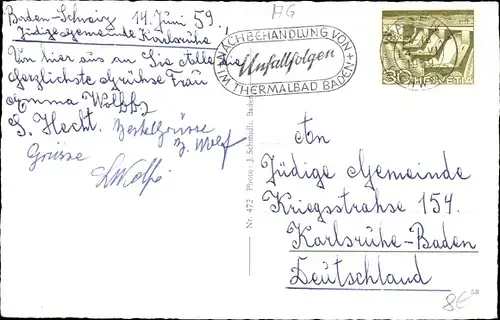 AG
Baden-Schweiz 14. Juni 59.
Jüdige Gemeinde Karlsruhe!
Von hier aus an Sie Alle die
herzlichste Grühse Frau
Emma Wolff
S. Hecht.
Grüsse
NACHBEHANDLUNG VON
Unfallfolgen
IM THERMALBAD BADEN
HELVETIA
An
Jüdige Gemeinde
Kriegsstrahse 154.
Karlsruhe-Baden
Deutschland
Nr. 472 Photo: J. Schmidli, Baden
8€
58